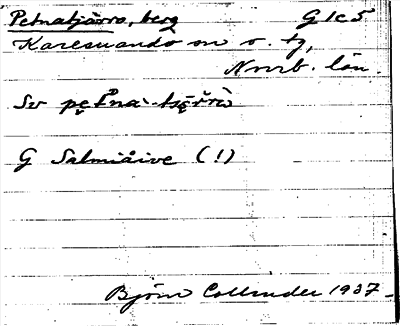 Petnatjårro, berg G 1c5
Karesuando sn o. tg,
Norrb. län.
Sv
G Salmiåive (!)
Björn Collinder 1937